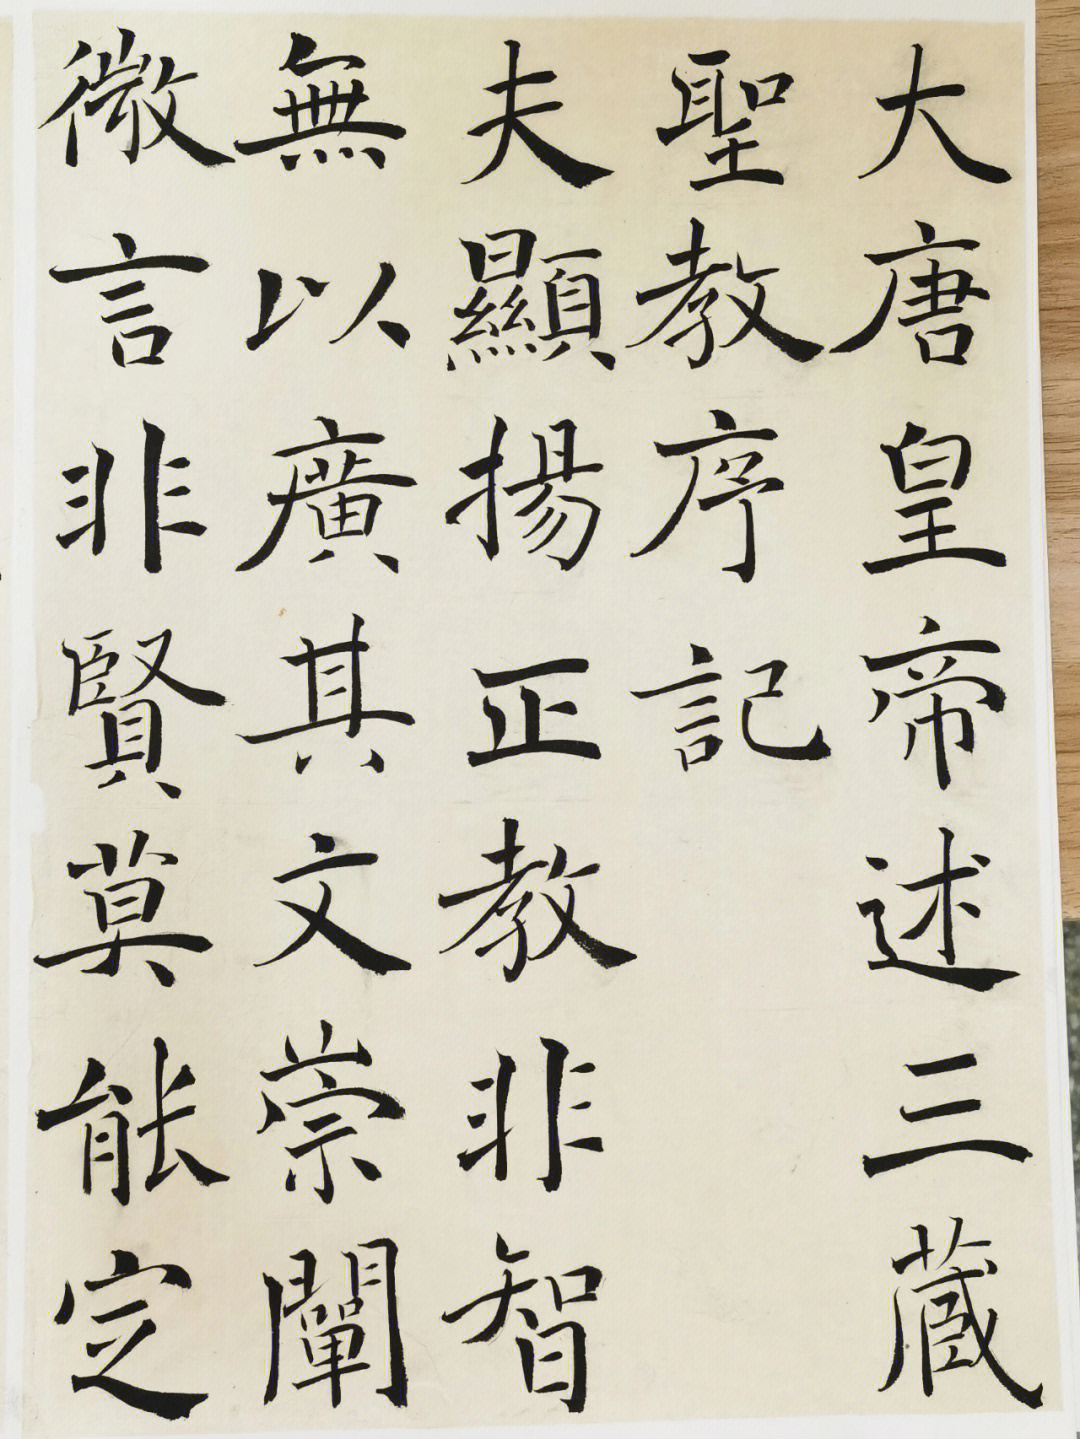 大唐皇帝述三蔵
聖教序記
夫顯揚正教非智
無以廣其文崇闡
微言非賢莫能定